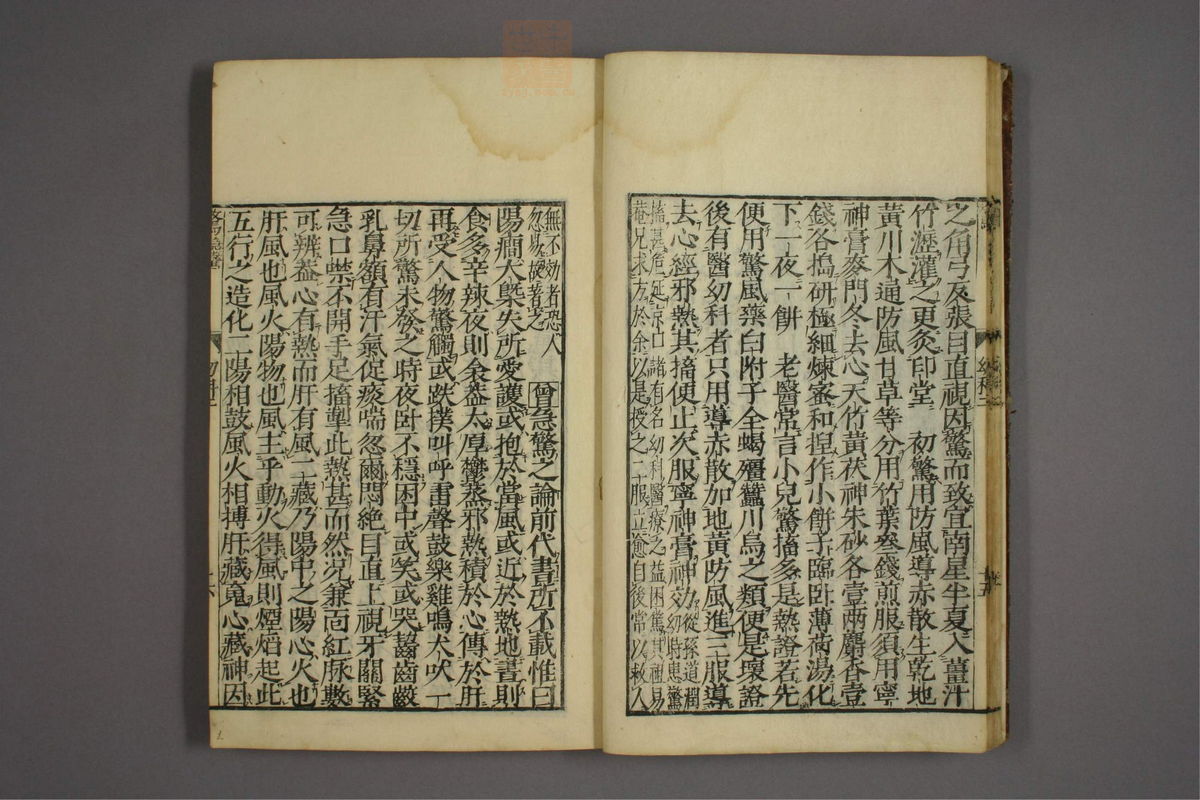 之角弓反張目直視因驚而致宜南星半夏入薑汁
竹瀝灌之更灸印堂 初驚用防風導赤散生乾地
黃川木通防風甘草等分用竹葉叄錢煎服須用寧
神膏麥門冬去心天竹黃茯神朱砂各壹兩麝香壹
錢各搗研極細煉蜜和揑作小餅子臨臥薄荷湯化
下一夜一餅 老醫常言小兒驚搐多是熱證若先
便用驚風藥白附子全蝎殭蠶川烏之類便是壞證
後有醫幼科者只用導赤散加地黃防風進三服導
去心經邪熱其搐便止次服寧神膏神効
從孫道潤幼時患驚
搐甚危延京口諸有名幼科醫療之益困篤其祖易
菴兄求方於余以是授之二服立愈自後常以救人
無不効者恐人
忽易䂓著之
曾急驚之論前代書所不載惟曰
陽癇大槩失所愛護或抱於當風或近於熱地晝則
食多辛辣夜則衾蓋太厚鬱蒸邪熱積於心傳於肝
再受人物驚觸或跌撲叫呼雷聲鼓樂雞鳴犬吠一
切所驚未發之時夜臥不穩困中或笑或哭齧齒齩
乳鼻額有汗氣促痰喘忽爾悶絕目直上視牙關緊
急口噤不開手足搐掣此熱甚而然况兼面紅脉數
可辨蓋心有熱而肝有風二藏乃陽中之陽心火也
肝風也風火陽物也風主乎動火得風則煙焰起此
五行之造化二陽相鼓風火相搏肝藏䰟心藏神因
幼科